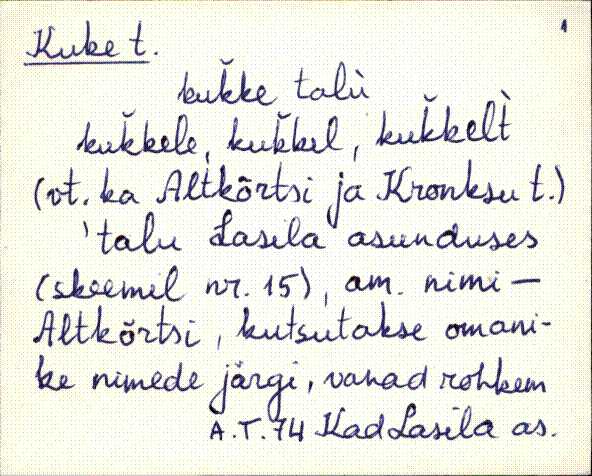 1
Kuke t.
kuk̆ke talù
kuk̆kele, kuk̆kel, kuk̆kelt̀
(vt. ka Altkõrtsi ja Kronksu t.)
'talu Lasila asunduses
(skeemil nr. 15), am. nimi —
Altkõrtsi, kutsutakse omani-
ke nimede järgi, vanad rohkem
A.T. 74 Kad Lasila as.